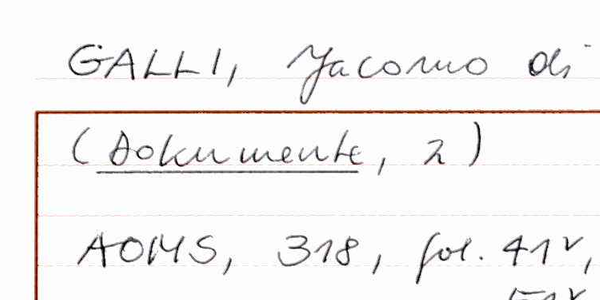 GALLI, Jacomo di
(Dokumente, 2)
AOMS, 318, fol. 41v,
51v